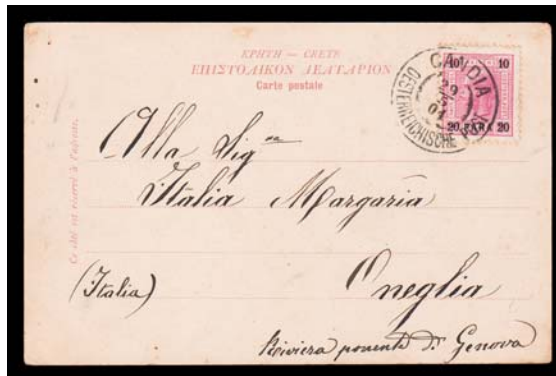 ΚΡΗΤΗ — CRETE
ΕΠΙΣΤΟΛΙΚΟΝ ΔΕΛΤΑΡΙΟΝ
Carte postale
10 10
20 PARA 20
CANDIA
29
01
OESTERREICHISCHE
Ce côté est réservé à l'adresse.
Alla Sigra
Italia Margaria
(Italia) Oneglia
Riviera ponente di Genova